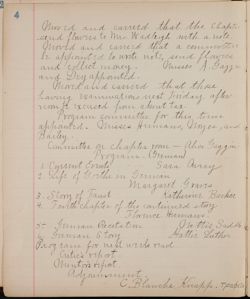 4
Moved and carried that the Chapter
send flowers to Mrs. Wadleigh with a note.
Moved and carried that a committee
be appointed to write note, send flowers
and collect money. Misses
and Dey appointed.
Moved and carried that those
having examinations next Friday after
noon be excused from
Program committee for this term
appointed. Misses Hermans,
Bailey.
Committee on chapter room - Alice
Program: German
1 Current Events Sara Avery
2. Life of Goethe in German
Margaret
3. Story of Faust Katherine Becker
4. Fourth chapter of the continued story
Florence Hermans
5. German Recitation
6. German Story Luther
Program for next week read
Critic's report
Minutes report
Adjournment
C. Blanche Knapp.